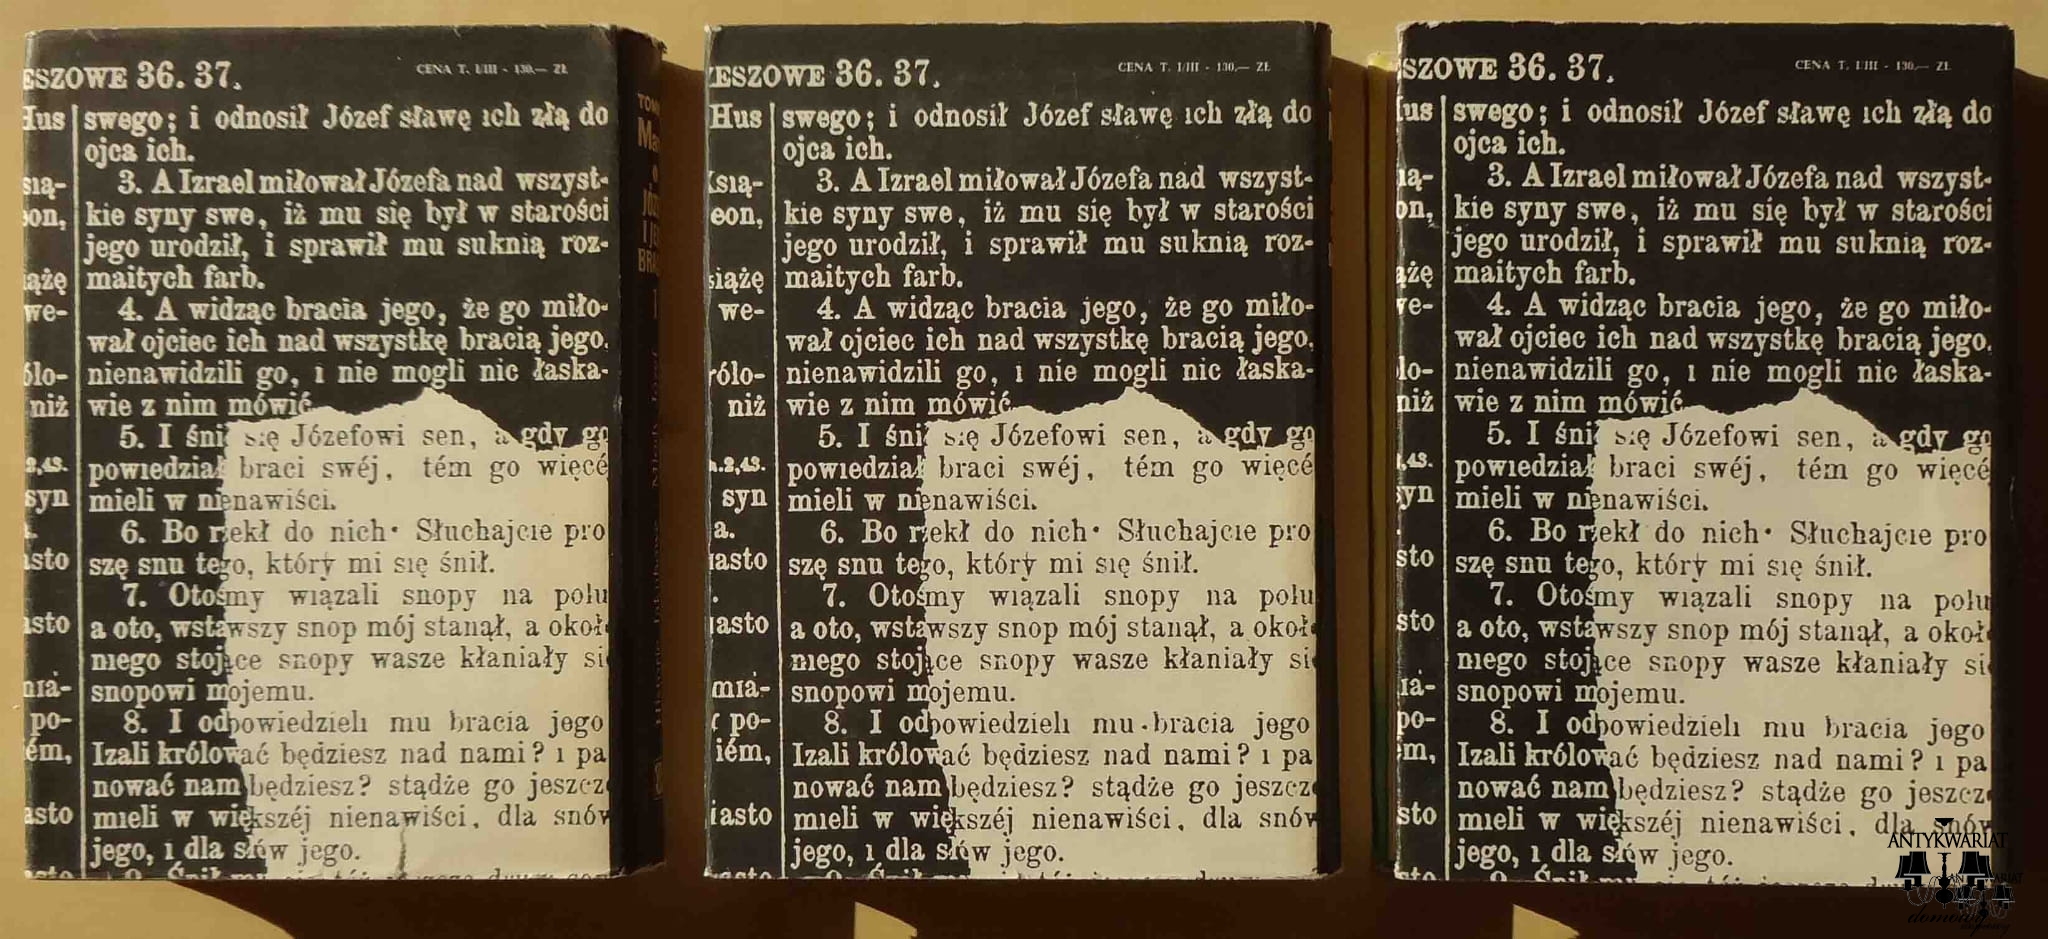 ESZOWE 36. 37.
CENA T. I/III - 130.— ZŁ
Hus
swego; i odnosił Józef sławę ich złą do
ojca ich.
3. A Izrael miłował Józefa nad wszyst-
kie syny swe, iż mu się był w starości
jego urodził, i sprawił mu suknią roz-
maitych farb.
4. A widząc bracia jego, że go miło-
we-
wał ojciec ich nad wszystkę bracią jego.
nienawidzili go, i nie mogli nic łaska-
niż
wie z nim mówić
5. I śnił się Józefowi sen, a gdy go
powiedział braci swéj, tém go więcé
syn
mieli w nienawiści.
6. Bo rzekł do nich· Słuchajcie pro
szę snu tego, który mi się śnił.
7. Otośmy wiązali snopy na polu
a oto, wstawszy snop mój stanął, a okoł
niego stojące snopy wasze kłaniały si
snopowi mojemu.
po-
8. I odpowiedzieli mu bracia jego
Izali królować będziesz nad nami? i pa
nować nam będziesz? stądże go jeszcz
mieli w większéj nienawiści, dla snów
jego, i dla słów jego.
ESZOWE 36. 37.
CENA T. I/III - 130.— ZŁ
Hus
swego; i odnosił Józef sławę ich złą do
ojca ich.
3. A Izrael miłował Józefa nad wszyst-
eon,
kie syny swe, iż mu się był w starości
jego urodził, i sprawił mu suknią roz-
maitych farb.
we-
4. A widząc bracia jego, że go miło-
wał ojciec ich nad wszystkę bracią jego,
nienawidzili go, i nie mogli nic łaska-
niż
wie z nim mówić
5. I śnił się Józefowi sen, a gdy go
powiedział braci swéj, tém go więcé
syn
mieli w nienawiści.
6. Bo rzekł do nich· Słuchajcie pro
szę snu tego, który mi się śnił.
7. Otośmy wiązali snopy na polu
a oto, wstawszy snop mój stanął, a okoł
niego stojące snopy wasze kłaniały si
snopowi mojemu.
po-
8. I odpowiedzieli mu bracia jego
iém,
Izali królować będziesz nad nami? i pa
nować nam będziesz? stądże go jeszcz
mieli w większéj nienawiści, dla snów
jego, i dla słów jego.
SZOWE 36. 37.
CENA T. I/III - 130.— ZŁ
swego; i odnosił Józef sławę ich złą do
ojca ich.
3. A Izrael miłował Józefa nad wszyst-
kie syny swe, iż mu się był w starości
jego urodził, i sprawił mu suknią roz-
maitych farb.
4. A widząc bracia jego, że go miło-
wał ojciec ich nad wszystkę bracią jego.
nienawidzili go, i nie mogli nic łaska-
niż
wie z nim mówić
5. I śnił się Józefowi sen, a gdy go
powiedział braci swéj, tém go więcé
mieli w nienawiści.
6. Bo rzekł do nich· Słuchajcie pro
szę snu tego, który mi się śnił.
7. Otośmy wiązali snopy na polu
a oto, wstawszy snop mój stanął, a okoł
niego stojące snopy wasze kłaniały si
snopowi mojemu.
po-
8. I odpowiedzieli mu bracia jego
Izali królować będziesz nad nami? i pa
nować nam będziesz? stądże go jeszcz
mieli w większéj nienawiści, dla snów
jego, i dla słów jego.
ANTYKWARIAT
domowy